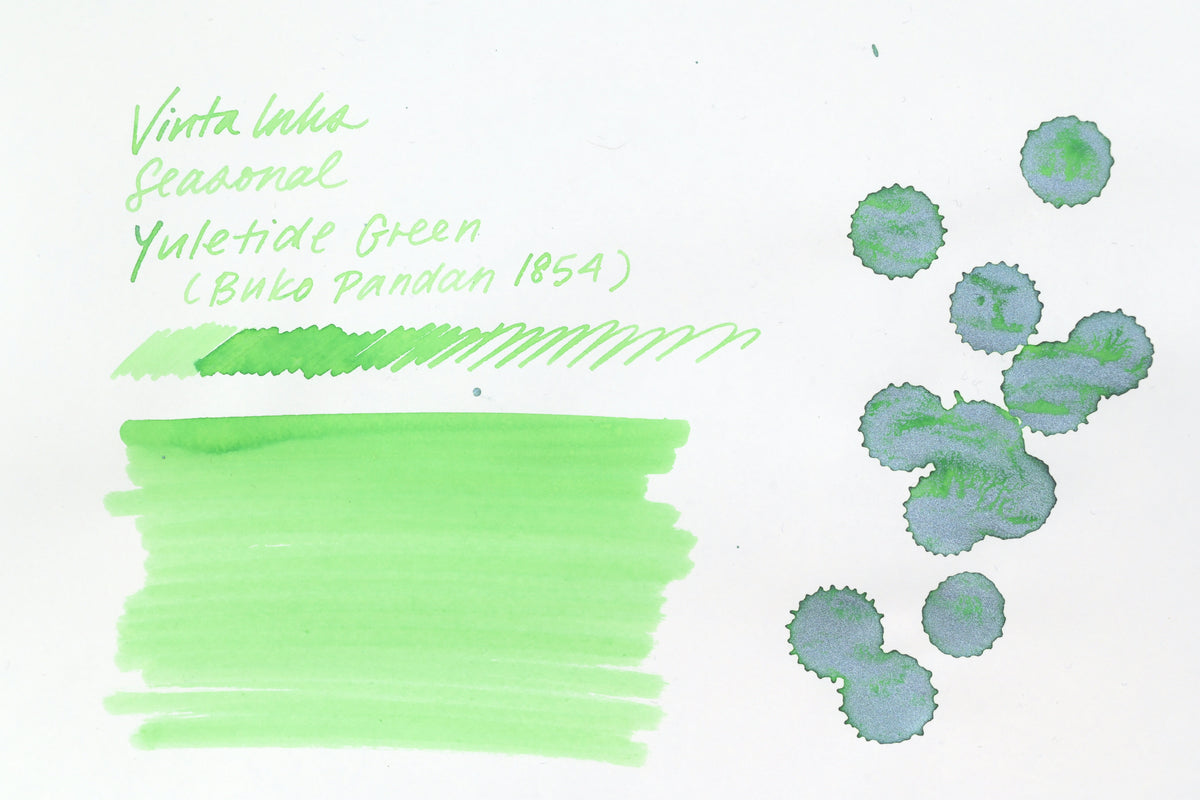 Vinta Inks
Seasonal
Yuletide Green
(Buko Pandan 1854)